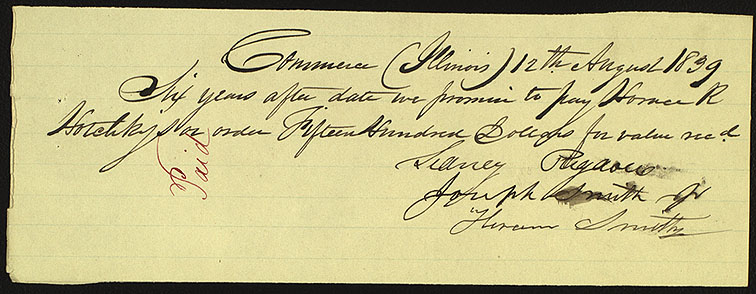 Commerce (Illinois) 12th August 1839
Six years after date we promise to pay Horace R
Hotchkiss or order Fifteen Hundred Dollars for value recd.
Sidney Rigdon
Joseph Smith Jr
Hiram Smith
Paid